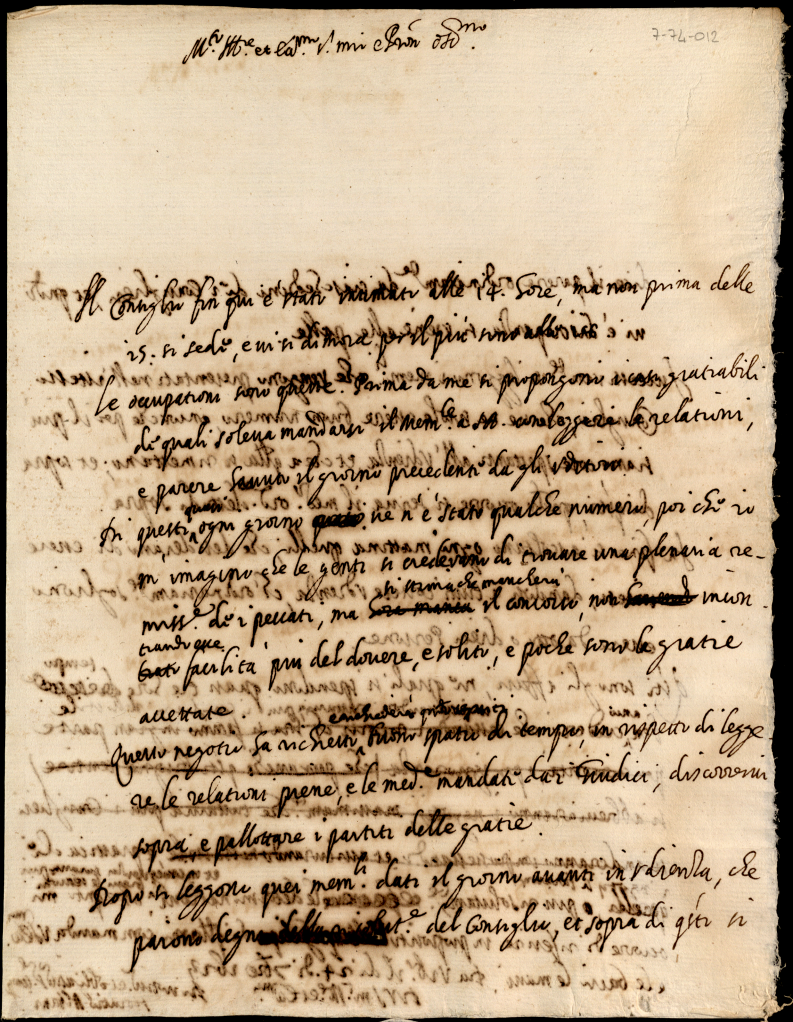 7-74-012
M.to Ill.re et ecc.mo S.r mio e Pron oss.mo
Il Consiglio fin qui è stato intimato alle 14. hore, ma non prima delle
15. si sede, e vi si dimora per il più sino alle
le occupationi sono queste. Prima da me si propongono i casi gratiabili
de quali soleva mandarsi il mem.le a con leggersi le relationi,
e parere havuto il giorno precedente da gli Uditori.
Di questi, quasi ogni giorno ve n'è stato qualche numero, poi che io
m'imagino che le genti si credevano di trovare una plenaria re-
miss.e de i peccati, ma si stima che mancherà il concorso, non incon-
trandosi facilità più del dovere, e solito, e poche sono le gratie
accettate.
Questo negotio ha richiesto buono spatio di tempo, in rispetto di legge-
re le relationi piene, e le med.e mandate dai Giudici, discorrervi
sopra, e pallottare i partiti delle gratie.
Dopo si leggono quei mem.li dati il giorno avanti in Udienza, che
paiono degni del Consiglio, et sopra di q.sti si